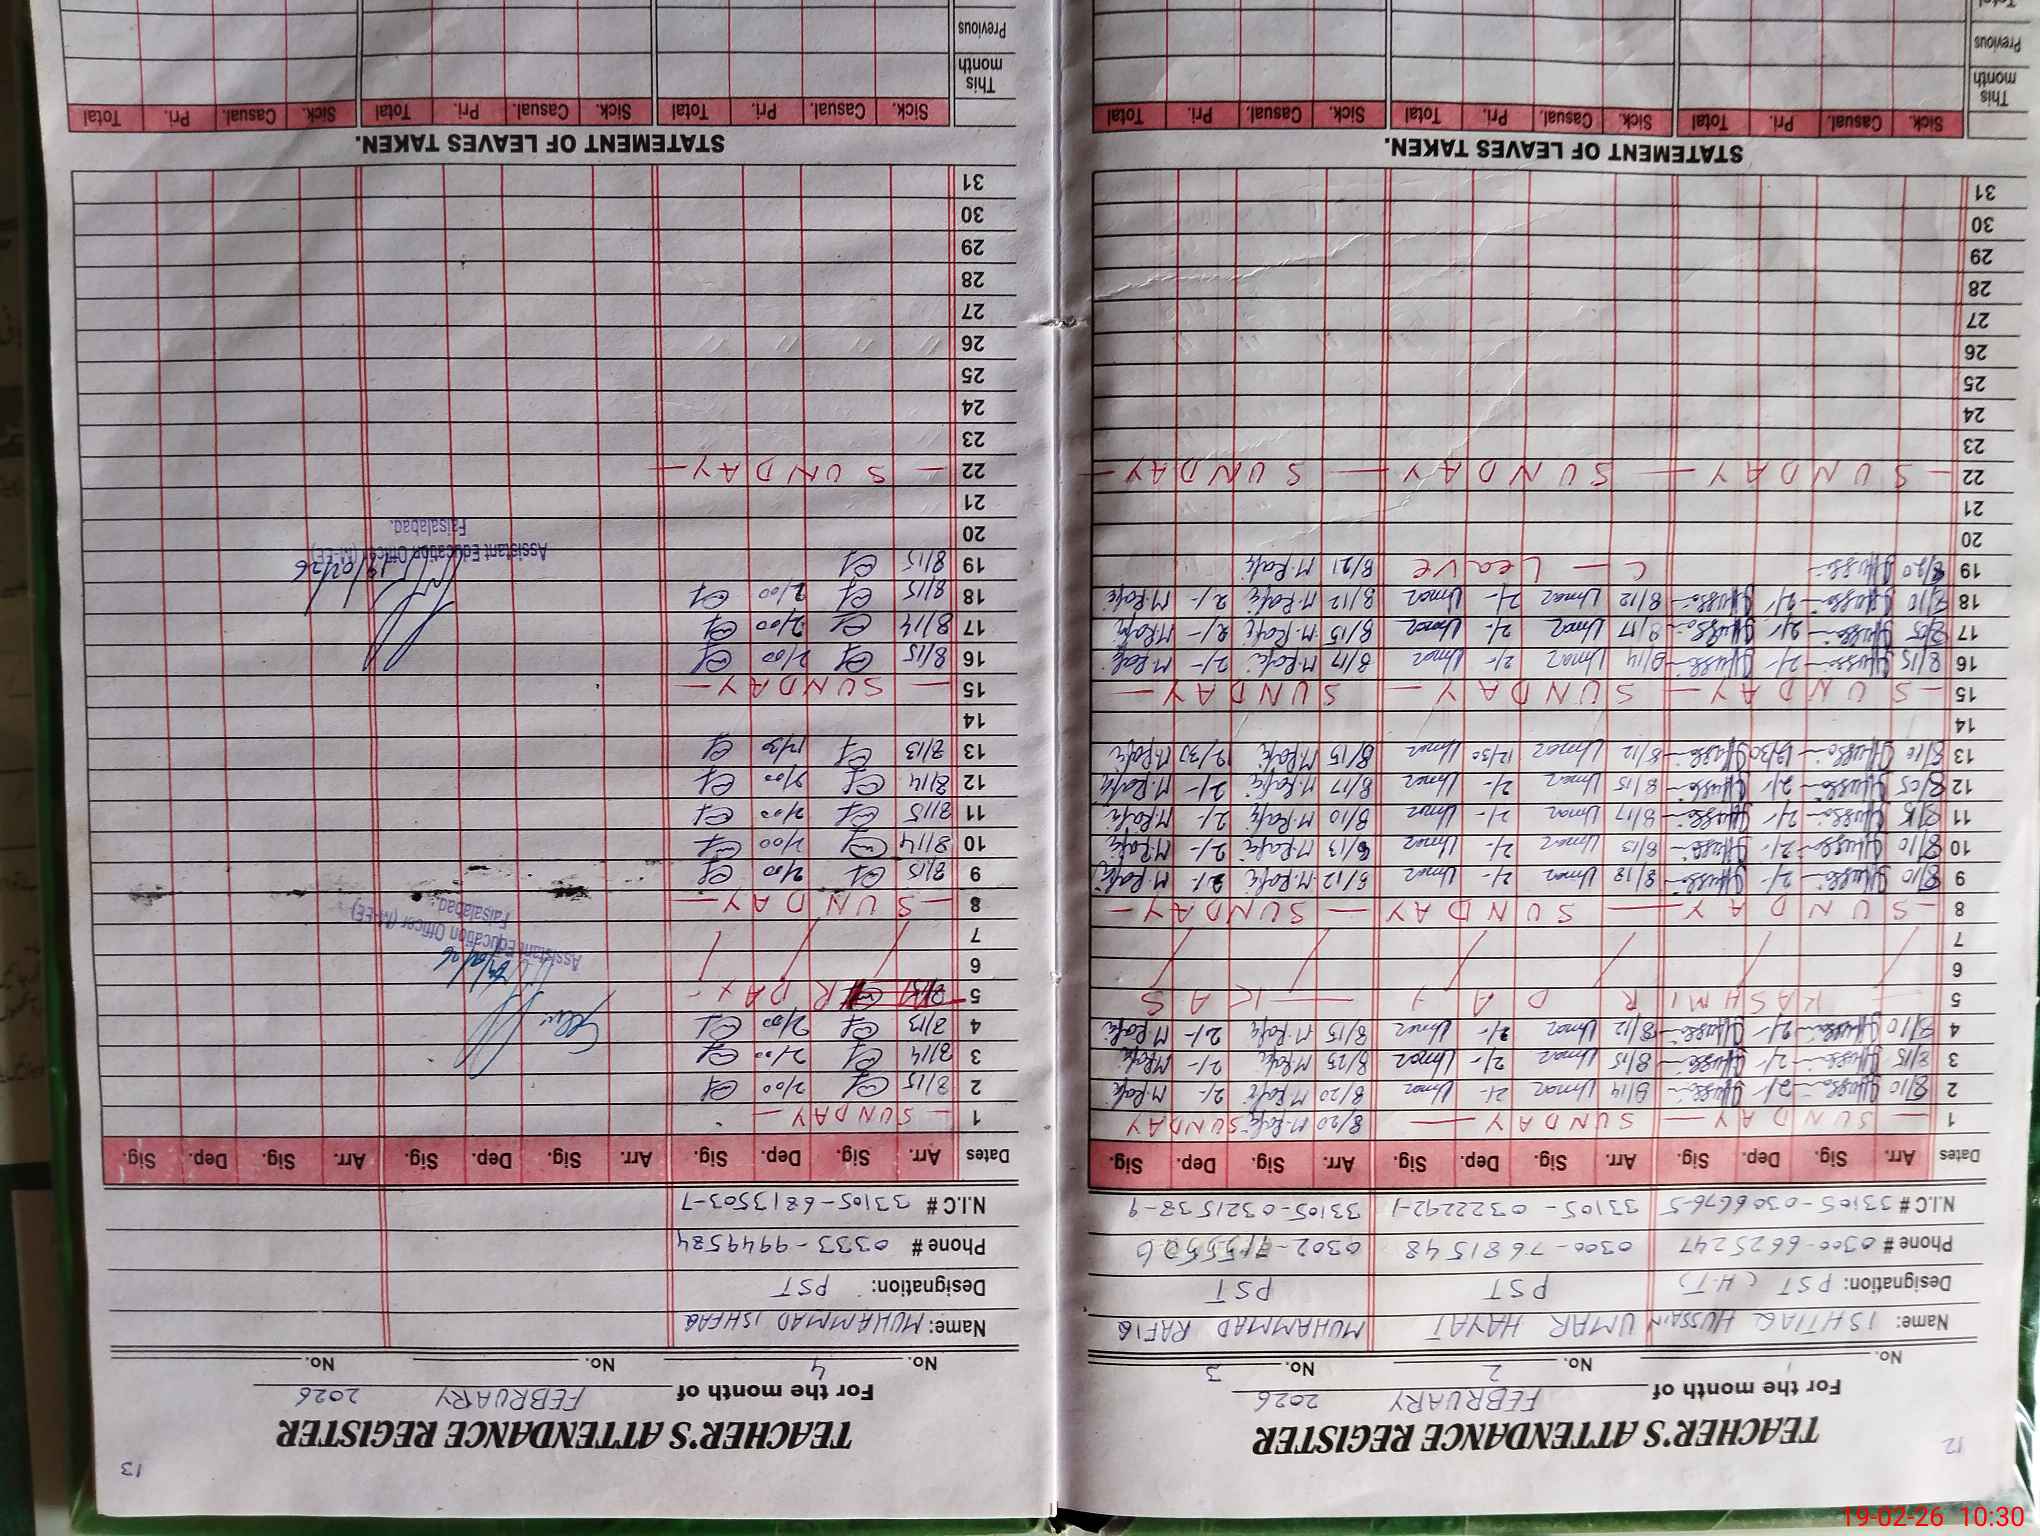 12
TEACHER'S ATTENDANCE REGISTER
For the month of FEBRUARY 2026
No. 1 No. 2 No. 3
Name: ISHTIAQ HUSSAIN UMAR HAYAT MUHAMMAD RAFIQ
Designation: PST (H.T) PST PST
Phone # 0300-6625247 0300-7681548 0302-
N.I.C # 33105-0306676-5 33105-0322242-1 33105-0321538-9
Dates Arr. Sig. Dep. Sig. Arr. Sig. Dep. Sig. Arr. Sig. Dep. Sig.
1 — SUNDAY — SUNDAY — 8/20 M.Rafiq SUNDAY
2 8/10 2/- 8/14 Umar 2/- Umar 8/20 M.Rafiq 2/- M.Rafiq
3 8/15 2/- 8/15 Umar 2/- Umar 8/25 M.Rafiq 2/- M.Rafiq
4 8/10 2/- 8/12 Umar 2/- Umar 8/15 M.Rafiq 2/- M.Rafiq
5 KASHMIR DAY
6
7
8 — SUNDAY — SUNDAY — SUNDAY —
9 8/10 2/- 8/18 Umar 2/- Umar 8/12 M.Rafiq 2/- M.Rafiq
10 8/10 2/- 8/13 Umar 2/- Umar 8/13 M.Rafiq 2/- M.Rafiq
11 8/15 2/- 8/17 Umar 2/- Umar 8/10 M.Rafiq 2/- M.Rafiq
12 8/05 2/- 8/15 Umar 2/- Umar 8/17 M.Rafiq 2/- M.Rafiq
13 8/10 12/30 8/12 Umar 12/30 Umar 8/15 M.Rafiq 12/30 M.Rafiq
14
15 — SUNDAY — SUNDAY — SUNDAY —
16 8/15 2/- 8/14 Umar 2/- Umar 8/17 M.Rafiq 2/- M.Rafiq
17 8/05 2/- 8/17 Umar 2/- Umar 8/15 M.Rafiq 2/- M.Rafiq
18 8/10 2/- 8/12 Umar 2/- Umar 8/12 M.Rafiq 2/- M.Rafiq
19 8/20 C — Leave 8/21 M.Rafiq
20
21
22 — SUNDAY — SUNDAY — SUNDAY —
23
24
25
26
27
28
29
30
31
STATEMENT OF LEAVES TAKEN.
Sick. Casual. Pri. Total Sick. Casual. Pri. Total Sick. Casual. Pri. Total
This month
Previous
Total
13
TEACHER'S ATTENDANCE REGISTER
For the month of FEBRUARY 2026
No. 4 No. No.
Name: MUHAMMAD ISHFAQ
Designation: PST
Phone # 0333-9949584
N.I.C # 33105-6813503-7
Dates Arr. Sig. Dep. Sig. Arr. Sig. Dep. Sig. Arr. Sig. Dep. Sig.
1 — SUNDAY —
2 8/15 2/00
3 8/14 2/00
4 8/13 2/00
5 R DAY
6
7
Assistant Education Officer (M-EE)
Faisalabad.
8 — SUNDAY —
9 8/15 2/00
10 8/14 2/00
11 8/15 2/00
12 8/14 2/00
13 8/13 12/30
14
15 — SUNDAY —
16 8/15 2/00
17 8/14 2/00
18 8/15 2/00
19 8/15
19/02/26
Assistant Education Officer (M-EE)
Faisalabad.
20
21
22 — SUNDAY —
23
24
25
26
27
28
29
30
31
STATEMENT OF LEAVES TAKEN.
Sick. Casual. Pri. Total Sick. Casual. Pri. Total Sick. Casual. Pri. Total
This month
Previous
19-02-26 10:30